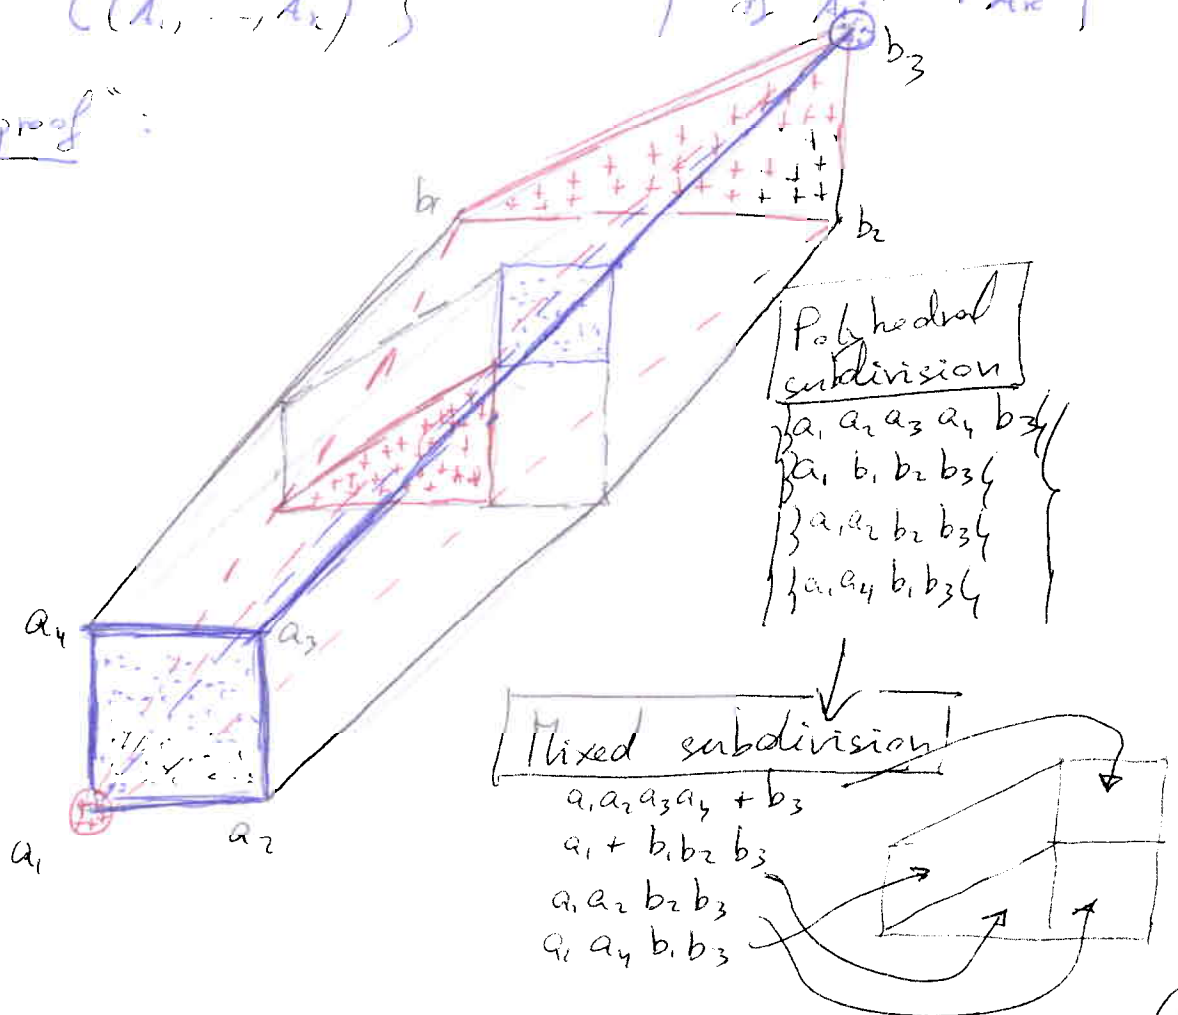 {(A₁, ..., Aₖ)}
of A₁, Aₖ
proof" :
b₃
b₁
b₂
Polyhedral
subdivision
{a₁ a₂ a₃ a₄ b₃}
{a₁ b₁ b₂ b₃}
{a₁ a₂ b₂ b₃}
{a₁ a₄ b₁ b₃}
a₄
a₃
a₁
a₂
Mixed subdivision
a₁a₂a₃a₄ + b₃
a₁ + b₁b₂b₃
a₁a₂ b₂b₃
a₁ a₄ b₁b₃